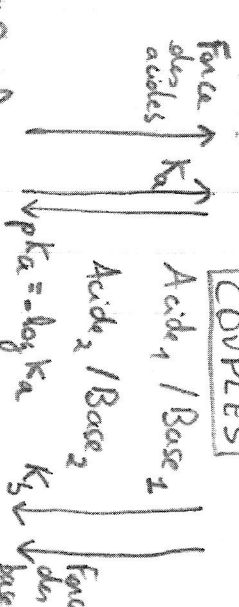 COUPLES
Force
des
acides
Ka
Acide₁ / Base₁
Acide₂ / Base₂
pKa = -log Ka
Kb
Force
des
base